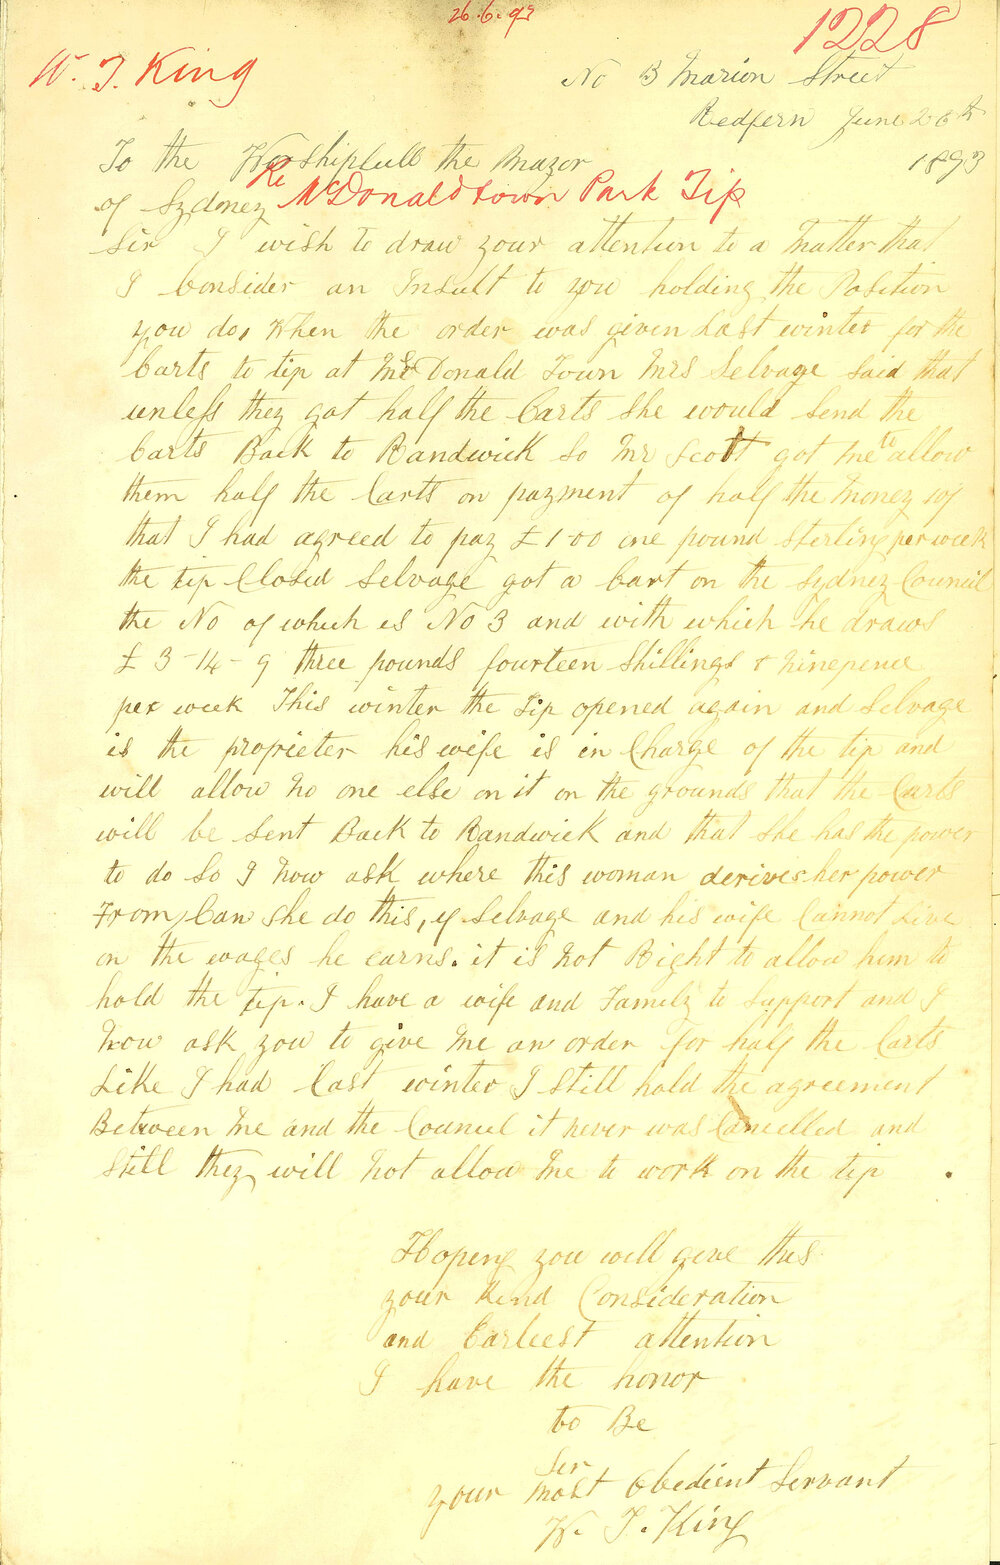 26.6.93
1228
W. J. King
No 3 Marion Street
Redfern June 26th
1893
To the Worshipfull the Mayor
of Sydney
Re McDonaldtown Park Tip
Sir I wish to draw your attention to a Matter that
I Consider an Insult to you holding the Position
you do, When the order was given Last winter for the
Carts to tip at McDonald Town Mrs Selvage Said that
unless they got half the Carts She would Send the
Carts Back to Randwick So Mr Scott got Me to allow
them half the Carts on payment of half the Money
that I had agreed to pay £1-00 one pound Sterling per week
the tip Closed Selvage got a Cart on the Sydney Council
the No of which is No 3 and with which he draws
£3-14-9 three pounds fourteen Shillings & Ninepence
per week This winter the Tip opened again and Selvage
is the proprieter his wife is in Charge of the tip and
will allow No one else on it on the grounds that the Carts
will be Sent Back to Randwick and that She has the power
to do So I Now ask where this woman derives her power
From, Can She do this, if Selvage and his wife Cannot Live
on the wages he earns. it is Not Right to allow him to
hold the tip. I have a wife and Family to Support and I
Now ask you to give Me an order For half the Carts
Like I had Last winter I Still hold the agreement
Between Me and the Council it never was Cancelled and
Still they will Not allow Me to work on the tip
Hoping you will give this
your Kind Consideration
and Earliest attention
I have the honor
to Be
Sir
your Most Obedient Servant
W. J. King